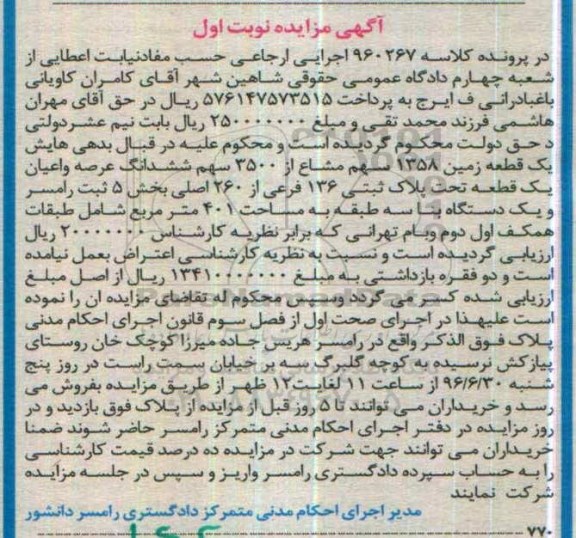 آگهی مزایده نوبت اول
در پرونده کلاسه ۹۶۰۲۶۷ اجرایی ارجاعی حسب مفادنیابت اعطایی از
شعبه چهارم دادگاه عمومی حقوقی شاهین شهر آقای کامران کاویانی
باغبادرانی ف ایرج به پرداخت ۵۷۶۱۴۷۵۷۳۵۱۵ ریال در حق آقای مهران
هاشمی فرزند محمد تقی و مبلغ ۲۵۰۰۰۰۰۰۰۰ ریال بابت نیم عشردولتی
د حق دولت محکوم گردیده است و محکوم علیه در قبال بدهی هایش
یک قطعه زمین ۱۳۵۸ سهم مشاع از ۳۵۰۰ سهم ششدانگ عرصه واعیان
یک قطعه تحت پلاک ثبتی ۱۳۶ فرعی از ۲۶۰ اصلی بخش ۵ ثبت رامسر
و یک دستگاه بنا سه طبقه به مساحت ۴۰۱ متر مربع شامل طبقات
همکف اول دوم وبام تهرانی که برابر نظریه کارشناس ریال
ارزیابی گردیده است و نسبت به نظریه کارشناسی اعتراض بعمل نیامده
است و دو فقره بازداشتی به مبلغ ۱۳۴۱۰۰۰۰۰۰۰ ریال از اصل مبلغ
ارزیابی شده کسر می گردد وسپس محکوم له تقاضای مزایده ان را نموده
است علیهذا در اجرای صحت اول از فصل سوم قانون اجرای احکام مدنی
پلاک فوق الذکر واقع در رامسر هریس جاده میرزا کوچک خان روستای
پیازکش نرسیده به کوچه گلبرگ سه بر خیابان سمت راست در روز پنج
شنبه ۹۶/۶/۳۰ از ساعت ۱۱ لغایت۱۲ ظهر از طریق مزایده بفروش می
رسد و خریداران می توانند تا ۵ روز قبل از مزایده از پلاک فوق بازدید و در
روز مزایده در دفتر اجرای احکام مدنی متمرکز رامسر حاضر شوند ضمنا
خریداران می توانند جهت شرکت در مزایده ده درصد قیمت کارشناسی
را به حساب سپرده دادگستری رامسر واریز و سپس در جلسه مزایده
شرکت نمایند
مدیر اجرای احکام مدنی متمرکز دادگستری رامسر دانشور
۷۷۰